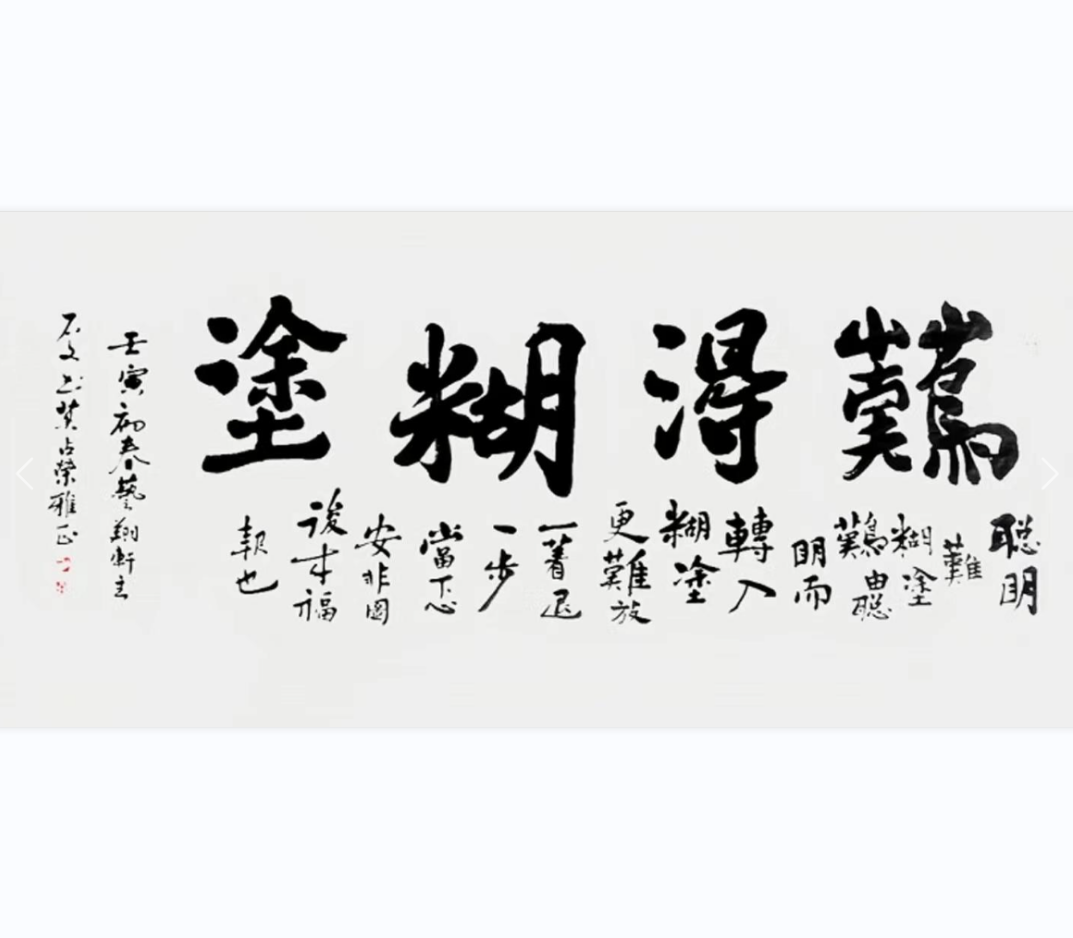 難得糊塗
聪明
難
糊塗
難由聪
明而
轉入
糊塗
更難放
一著退
一步
當下心
安非圖
後来福
報也
壬寅初春藝翔軒主
占榮雅正